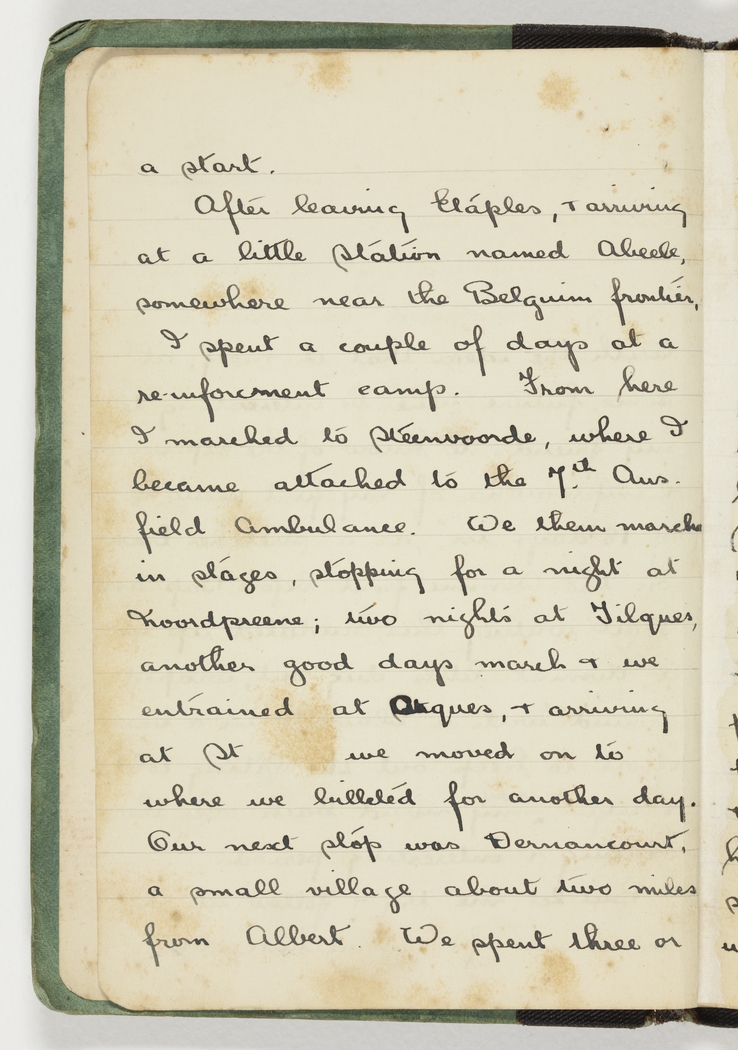 a start.
After leaving Etáples, + arriving
at a little station named Abeele,
somewhere near the Belguim frontier,
I spent a couple of days at a
re-inforcment camp. From here
I marched to Steenvoorde, where I
became attached to the 7.th Aus.
field Ambulance. We them march
in stages, stopping for a night at
Noordpreene; two nights at Tilques,
another good days march + we
entrained at Arques, + arriving
at St we moved on to
where we billeted for another day.
Our next stop was Dernancourt,
a small village about two miles
from Albert. We spent three or